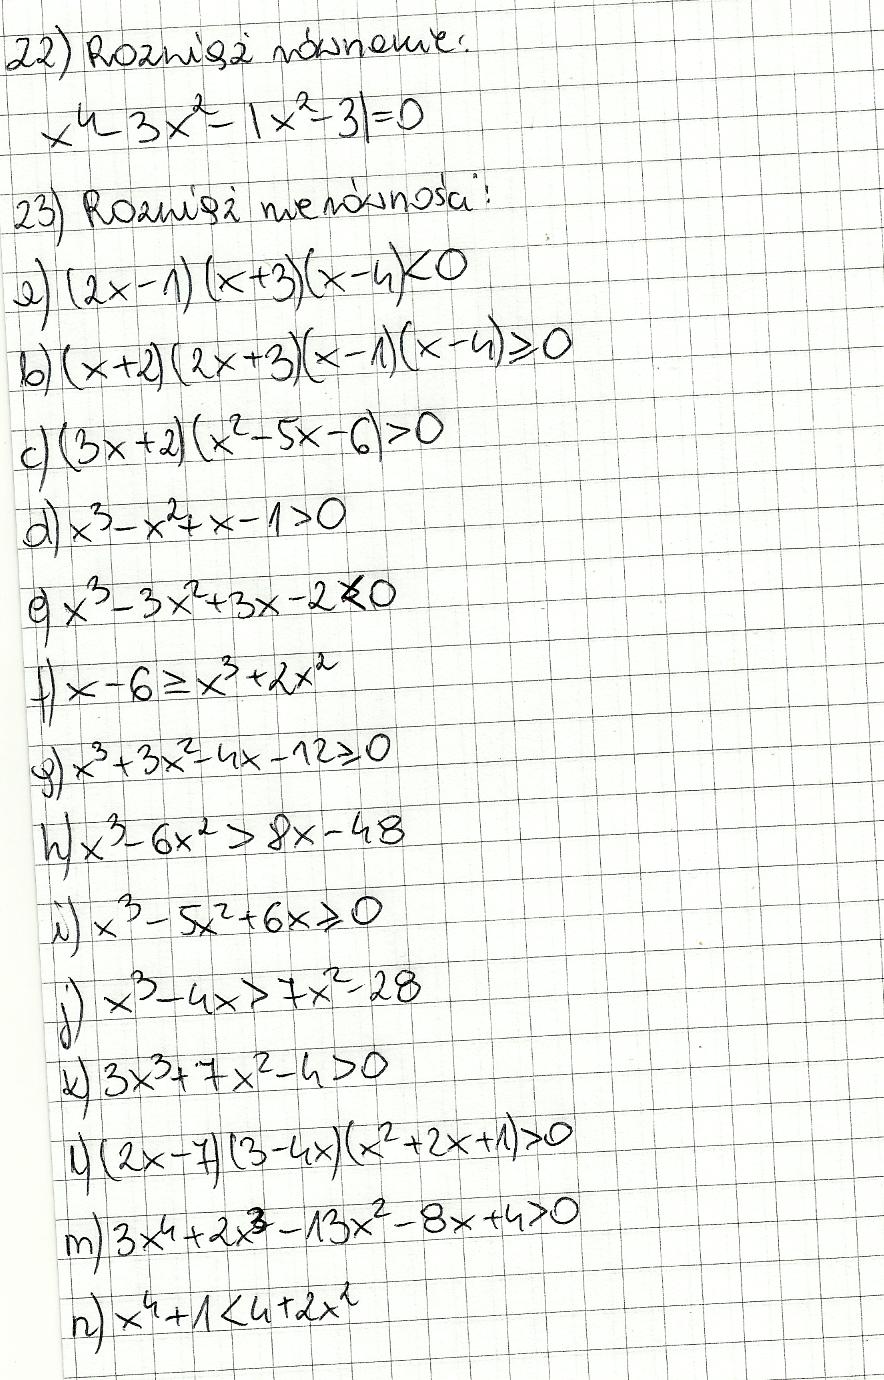 22) Rozwiąż równanie:
x⁴-3x²-|x²-3|=0
23) Rozwiąż nierówności:
a) (2x-1)(x+3)(x-4)<0
b) (x+2)(2x+3)(x-1)(x-4)≥0
c) (3x+2)(x²-5x-6)>0
d) x³-x²+x-1>0
e) x³-3x²+3x-2<0
f) x-6≥x³+2x²
g) x³+3x²-4x-12≥0
h) x³-6x²>8x-48
i) x³-5x²+6x≥0
j) x³-4x>7x²-28
k) 3x³+7x²-4>0
l) (2x-7)(3-4x)(x²+2x+1)>0
m) 3x⁴+2x³-13x²-8x+4>0
n) x⁴+1<4+2x²